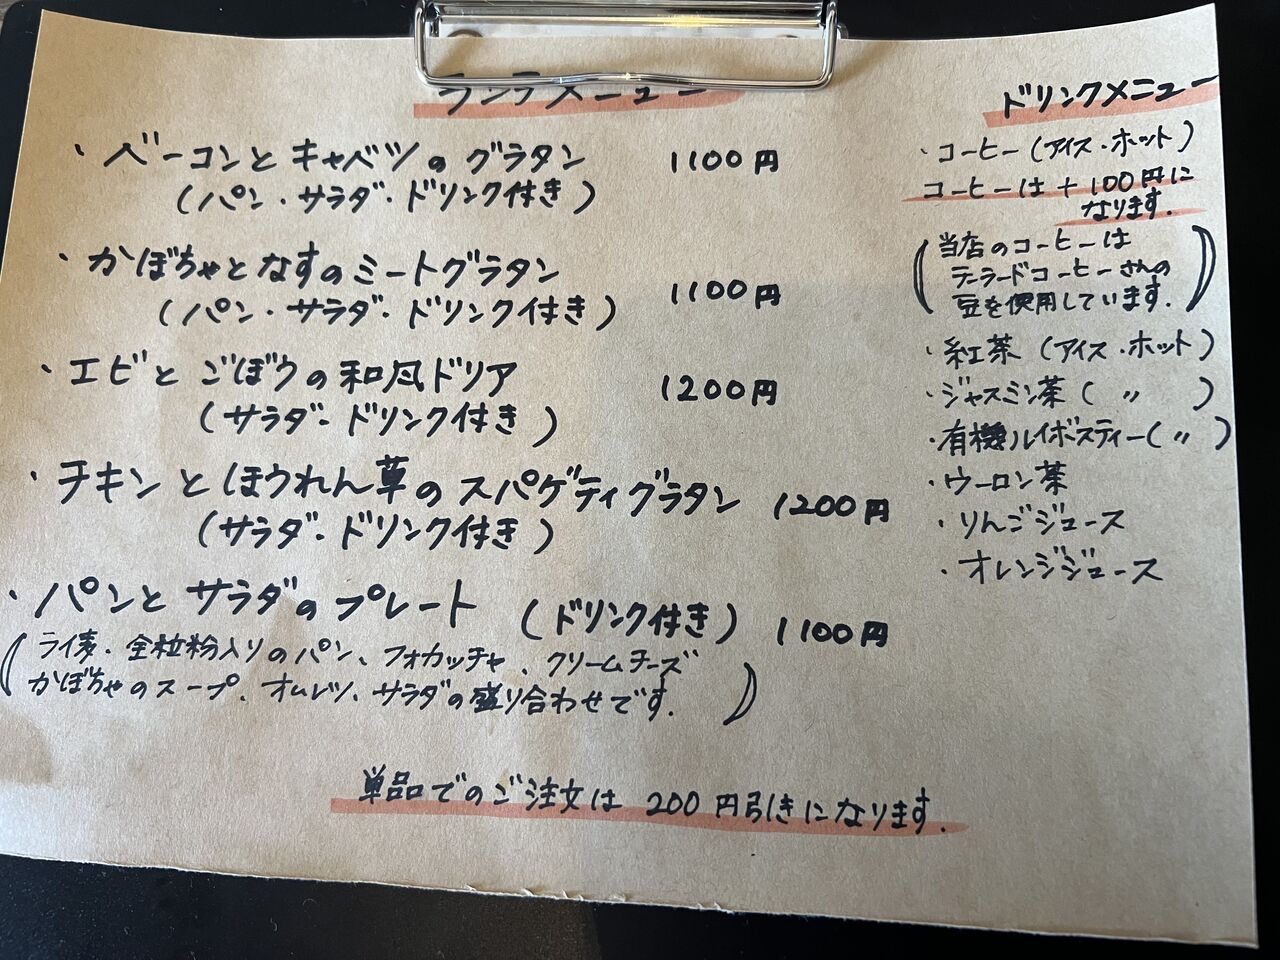 ランチメニュー
・ベーコンとキャベツのグラタン 1100円
(パン・サラダ・ドリンク付き)
・かぼちゃとなすのミートグラタン 1100円
(パン・サラダ・ドリンク付き)
・エビとごぼうの和風ドリア 1200円
(サラダ・ドリンク付き)
・チキンとほうれん草のスパゲティグラタン 1200円
(サラダ・ドリンク付き)
・パンとサラダのプレート (ドリンク付き) 1100円
(ライ麦、全粒粉入りのパン、フォカッチャ、クリームチーズ
かぼちゃのスープ、オムレツ、サラダの盛り合わせです.)
単品でのご注文は 200円引きになります.
ドリンクメニュー
・コーヒー(アイス・ホット)
コーヒーは+100円に
なります.
(当店のコーヒーは
テーラードコーヒーさんの
豆を使用しています.)
・紅茶 (アイス・ホット)
・ジャスミン茶 ( 〃 )
・有機ルイボスティー( 〃 )
・ウーロン茶
・りんごジュース
・オレンジジュース